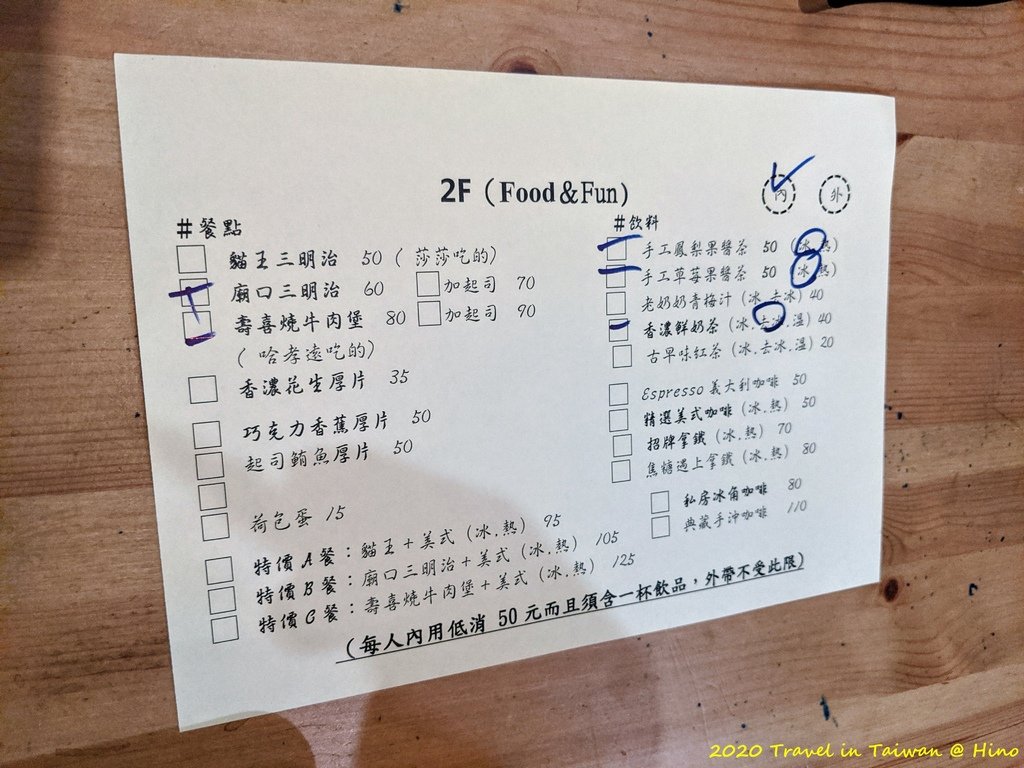 2F (Food&Fun)
內 外
#餐點
貓王三明治 50 (莎莎吃的)
廟口三明治 60 加起司 70
壽喜燒牛肉堡 80 加起司 90
(哈孝遠吃的)
香濃花生厚片 35
巧克力香蕉厚片 50
起司鮪魚厚片 50
荷包蛋 15
特價A餐:貓王+美式(冰.熱) 95
特價B餐:廟口三明治+美式(冰.熱) 105
特價C餐:壽喜燒牛肉堡+美式(冰.熱) 125
#飲料
手工鳳梨果醬茶 50 (冰.熱)
手工草莓果醬茶 50 (冰.熱)
老奶奶青梅汁(冰.去冰) 40
香濃鮮奶茶(冰.去冰.溫) 40
古早味紅茶(冰.去冰.溫) 20
Espresso 義大利咖啡 50
精選美式咖啡(冰.熱) 50
招牌拿鐵(冰.熱) 70
焦糖遇上拿鐵(冰.熱) 80
私房冰角咖啡 80
典藏手沖咖啡 110
(每人內用低消 50 元而且須含一杯飲品,外帶不受此限)
2020 Travel in Taiwan @ Hino